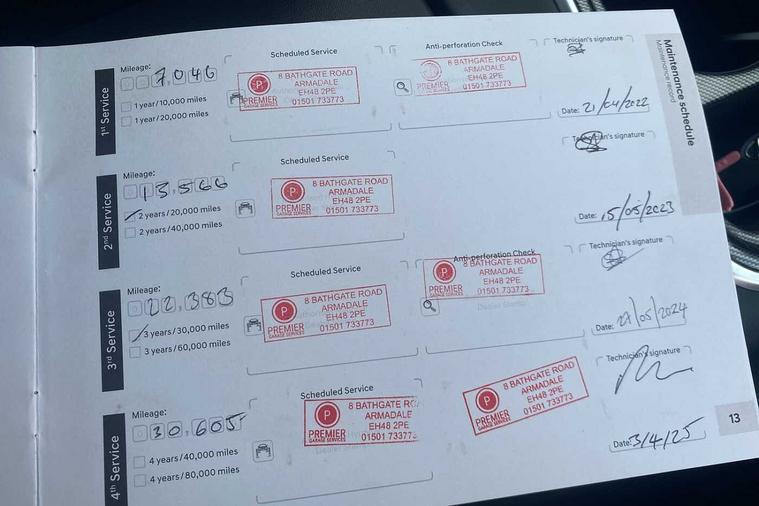 Maintenance schedule
Maintenance record
1st Service
Mileage:
7,046
1 year/10,000 miles
1 year/20,000 miles
Scheduled Service
P
PREMIER
8 BATHGATE ROAD
ARMADALE
EH48 2PE
01501 733773
Anti-perforation Check
PREMIER
8 BATHGATE ROAD
ARMADALE
EH48 2PE
01501 733773
Technician's signature
Date: 21/04/2022
2nd Service
Mileage:
13,566
2 years/20,000 miles
2 years/40,000 miles
Scheduled Service
P
PREMIER
GARAGE SERVICES
8 BATHGATE ROAD
ARMADALE
EH48 2PE
01501 733773
Technician's signature
Date: 15/05/2023
3rd Service
Mileage:
22,383
3 years/30,000 miles
3 years/60,000 miles
Scheduled Service
P
PREMIER
GARAGE SERVICES
8 BATHGATE ROAD
ARMADALE
EH48 2PE
01501 733773
Anti-perforation Check
P
PREMIER
GARAGE SERVICES
8 BATHGATE ROAD
ARMADALE
EH48 2PE
01501 733773
Technician's signature
Date: 27/05/2024
4th Service
Mileage:
30,605
4 years/40,000 miles
4 years/80,000 miles
Scheduled Service
P
PREMIER
GARAGE SERVICES
8 BATHGATE
ARMADALE
EH48 2PE
01501 7337
P
PREMIER
GARAGE SERVICES
8 BATHGATE ROAD
ARMADALE
EH48 2PE
01501 733773
Technician's signature
Date: 3/4/25
13